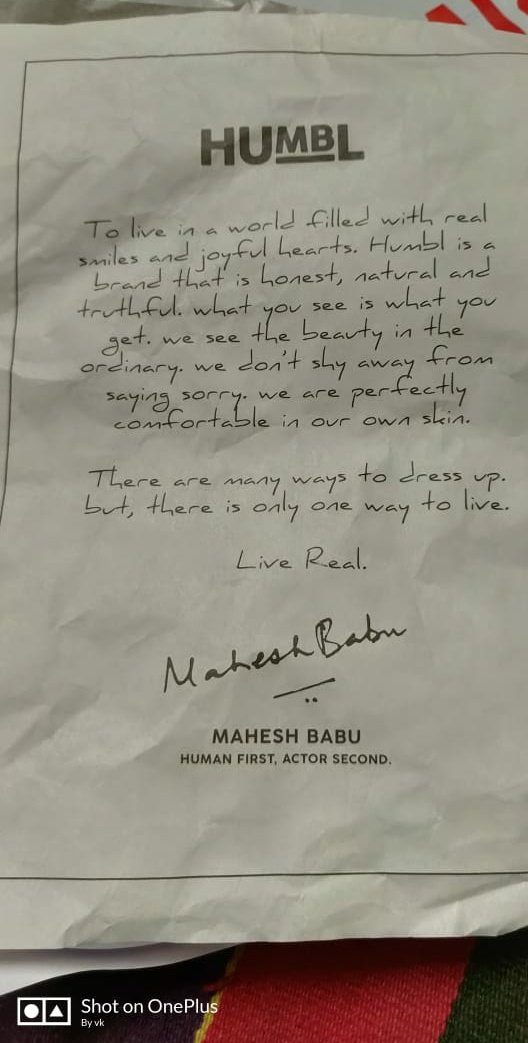 HUMBL
To live in a world filled with real
smiles and joyful hearts. Humbl is a
brand that is honest, natural and
truthful. what you see is what you
get. we see the beauty in the
ordinary. we don't shy away from
saying sorry. we are perfectly
comfortable in our own skin.
There are many ways to dress up.
but, there is only one way to live.
Live Real.
Mahesh Babu
MAHESH BABU
HUMAN FIRST, ACTOR SECOND.
Shot on OnePlus
By vk